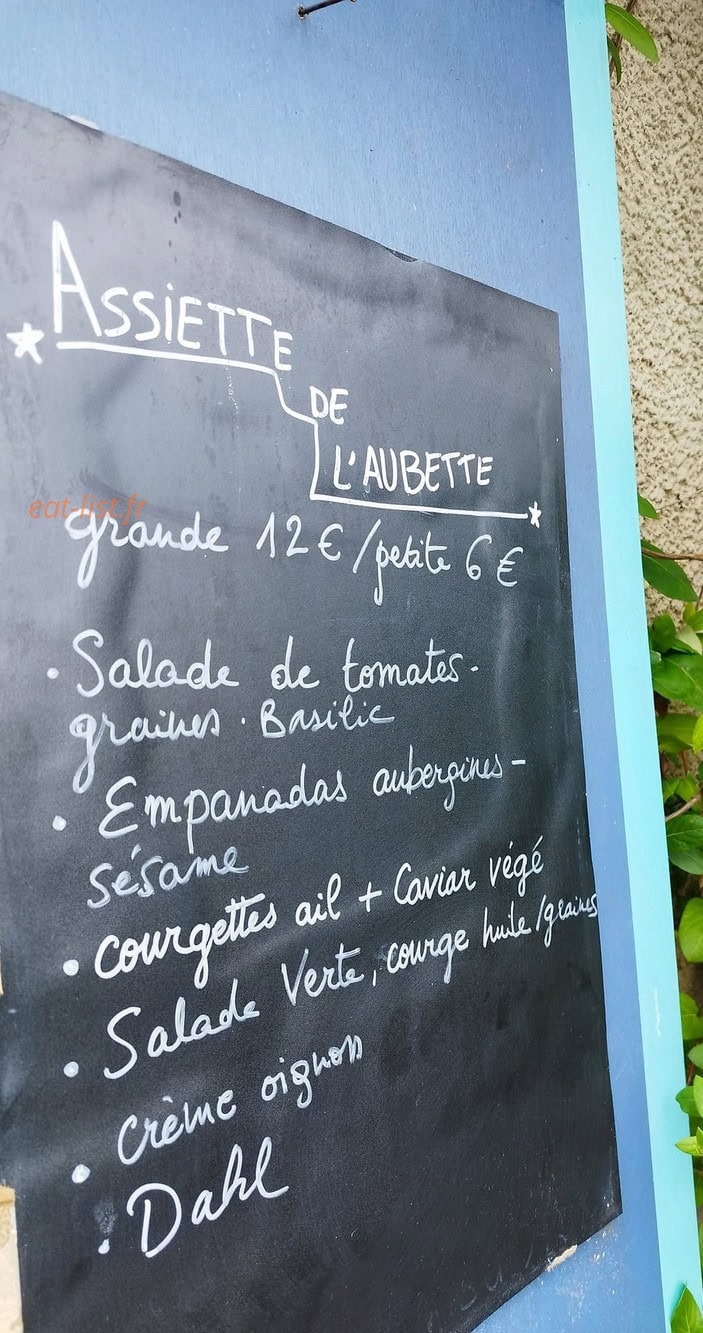 ASSIETTE
DE
L'AUBETTE
eat-list.fr
grande 12€/petite 6€
• Salade de tomates-
graines • Basilic
• Empanadas aubergines -
sésame
• courgettes ail + Caviar végé
• Salade Verte, courge huile/graines
• crème oignons
• Dahl